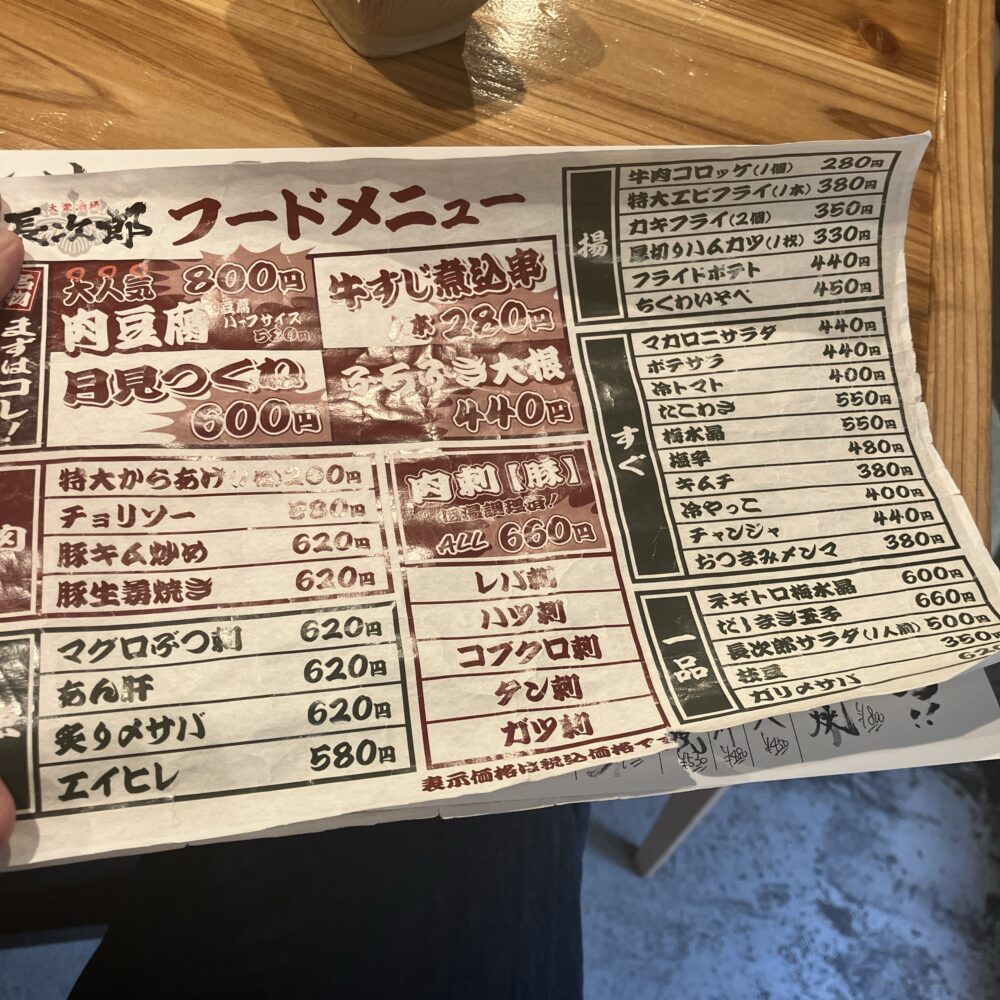 大衆酒場
長次郎
フードメニュー
まずはコレ!
大人気 800円
肉豆腐
ハーフサイズ
牛すじ煮込串
1本 280円
月見つくね
600円
ふろふき大根
440円
特大からあげ(1個)200円
チョリソー 580円
豚キム炒め 620円
豚生姜焼き 620円
マグロぶつ刺 620円
あん肝 620円
炙り〆サバ 620円
エイヒレ 580円
肉刺【豚】
低温調理済!
ALL 660円
レバ刺
ハツ刺
コブクロ刺
タン刺
ガツ刺
表示価格は税込価格です
揚
牛肉コロッケ(1個) 280円
特大エビフライ(1本) 380円
カキフライ(2個) 350円
厚切りハムカツ(1枚) 330円
フライドポテト 440円
ちくわいそべ 450円
すぐ
マカロニサラダ 440円
ポテサラ 440円
冷トマト 400円
たこわさ 550円
梅水晶 550円
塩辛 480円
キムチ 380円
冷やっこ 400円
チャンジャ 440円
おつまみメンマ 380円
一品
ネギトロ梅水晶 600円
だしまき玉子 660円
長次郎サラダ(1人前) 500円
枝豆 350円
ガリ〆サバ 620
焼